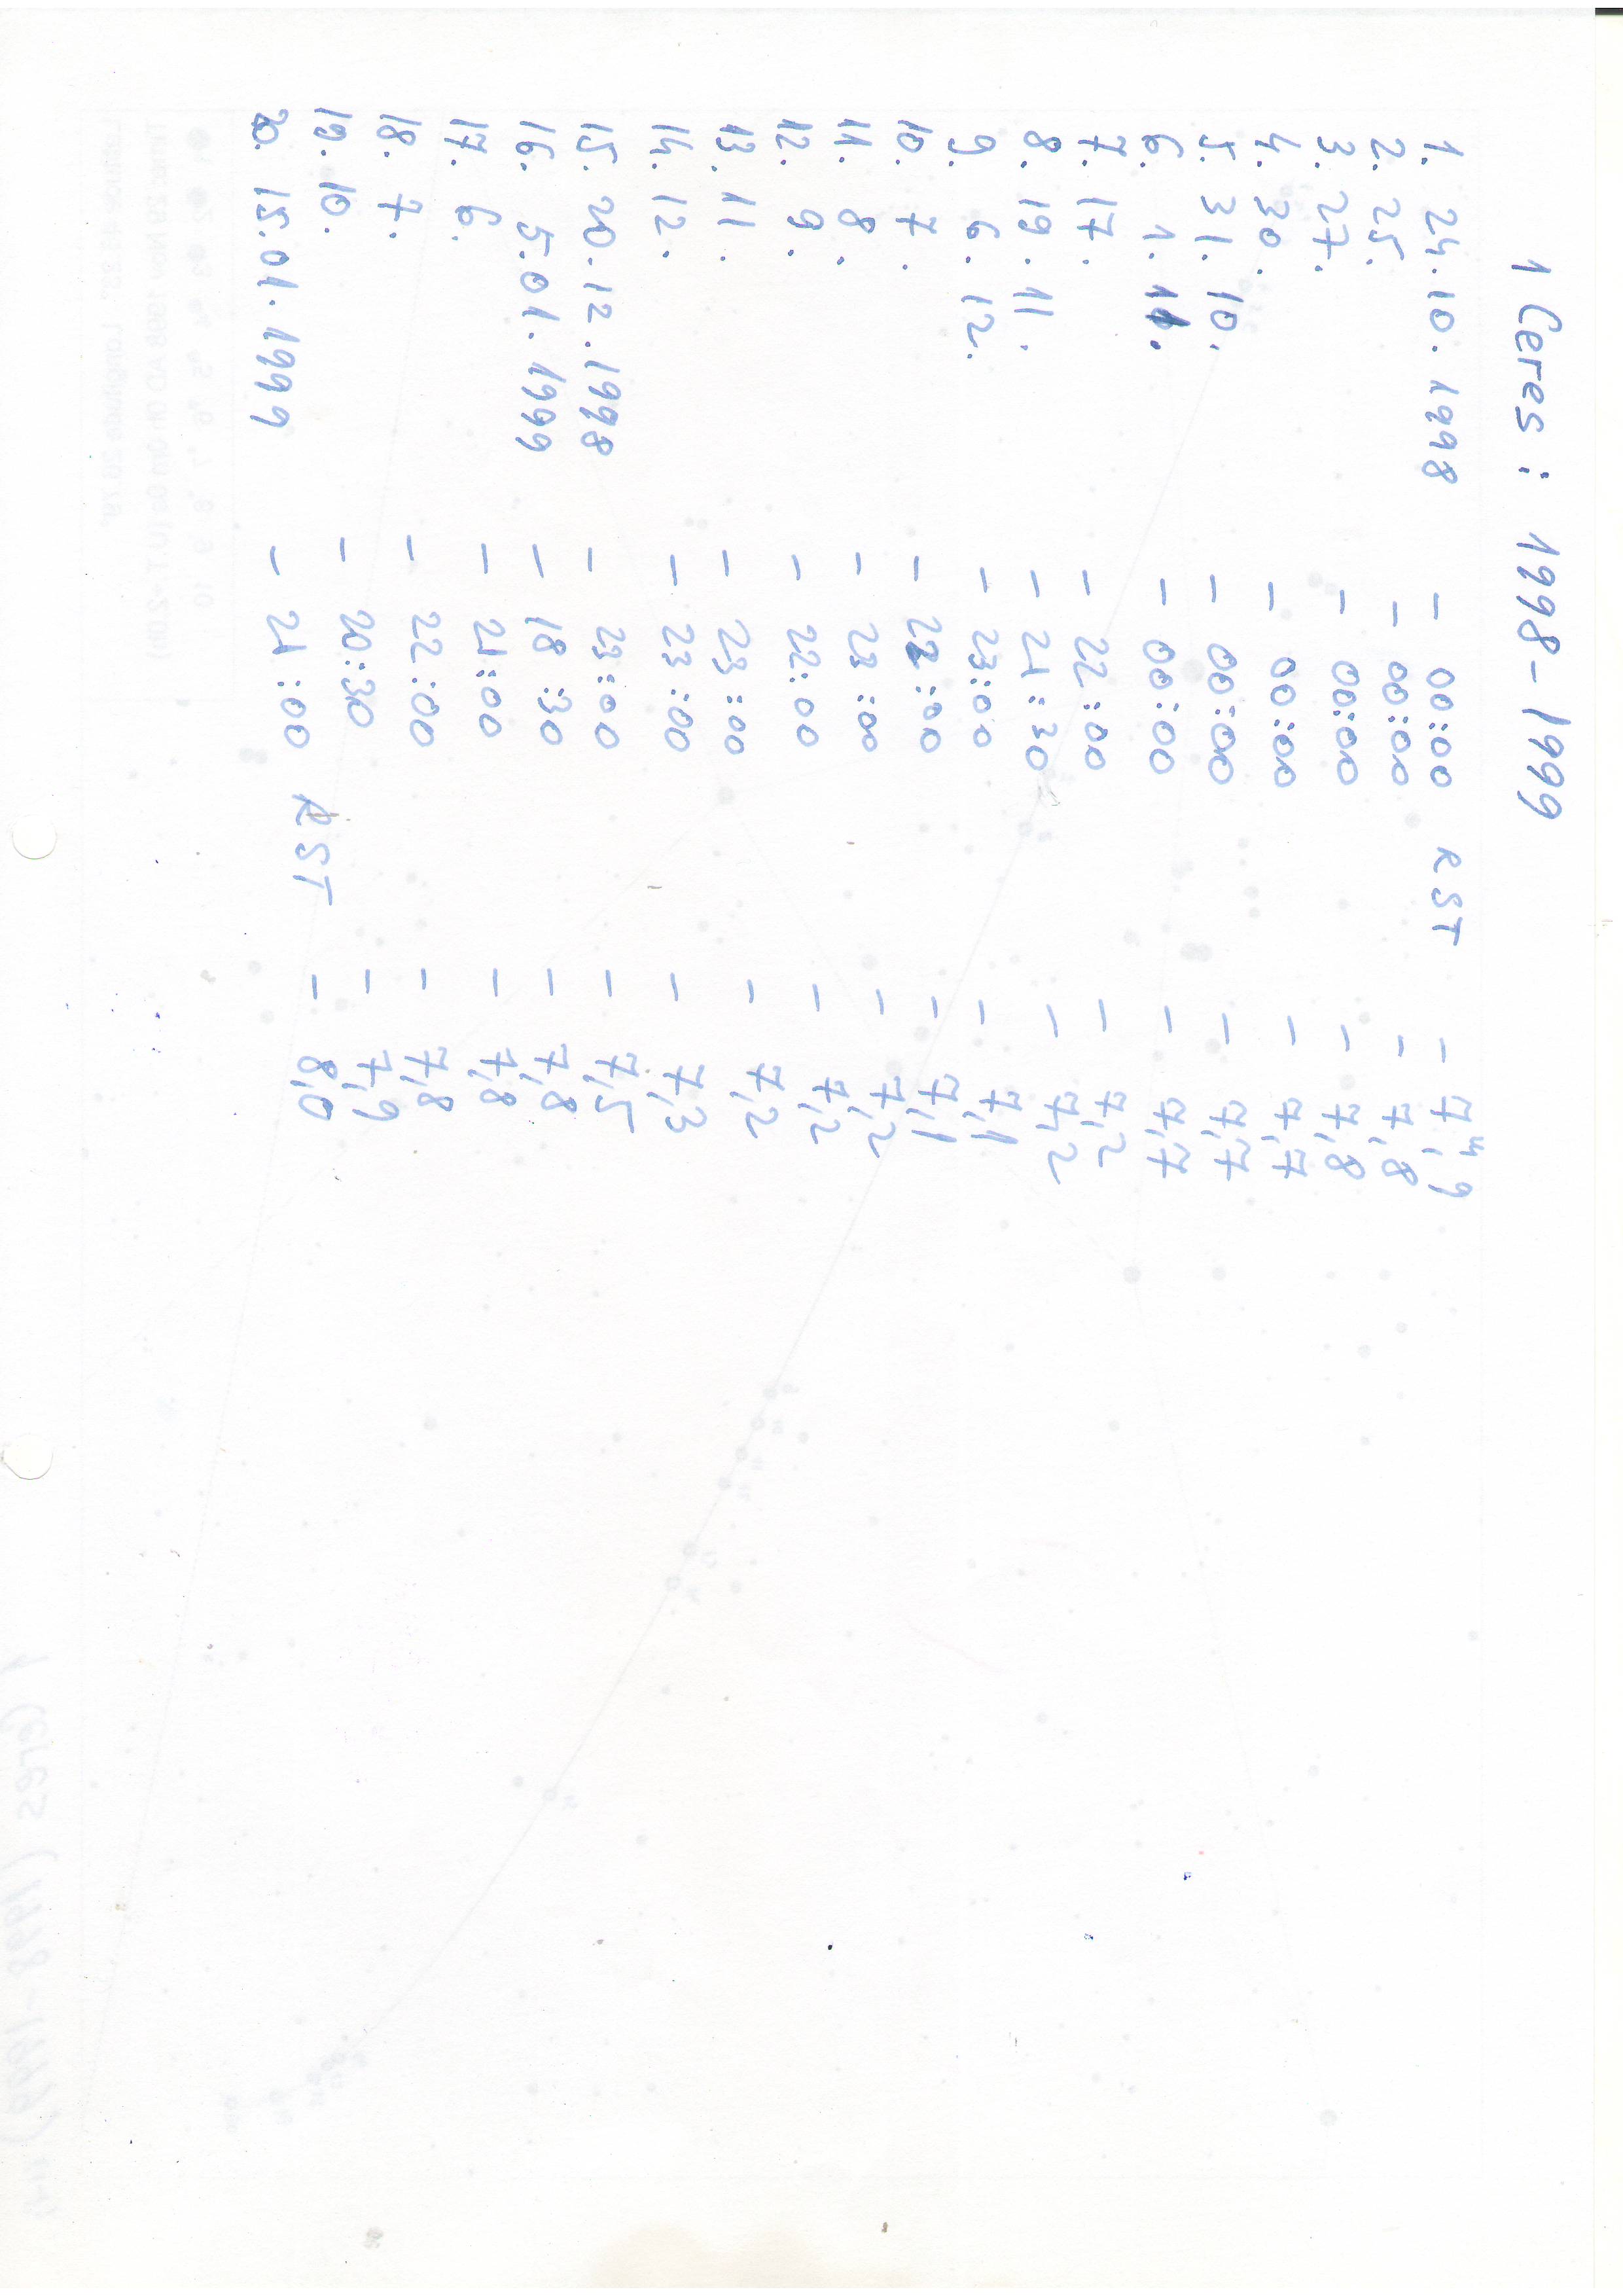 1 Ceres : 1998-1999
1. 24.10.1998 - 00:00 RST - 7,ᵐ9
2. 25. - 00:00 - 7,8
3. 27. - 00:00 - 7,8
4. 30. - 00:00 - 7,7
5. 31.10. - 00:00 - 7,7
6. 1.11. - 00:00 - 7,7
7. 17. - 22:00 - 7,2
8. 19.11. - 21:30 - 7,2
9. 6.12. - 23:00 - 7,1
10. 7. - 22:00 - 7,1
11. 8. - 23:00 - 7,2
12. 9. - 22:00 - 7,2
13. 11. - 23:00 - 7,2
14. 12. - 23:00 - 7,3
15. 20.12.1998 - 23:00 - 7,5
16. 5.01.1999 - 18:30 - 7,8
17. 6. - 21:00 - 7,8
18. 7. - 22:00 - 7,8
19. 10. - 20:30 - 7,9
20. 15.01.1999 - 21:00 RST - 8,0